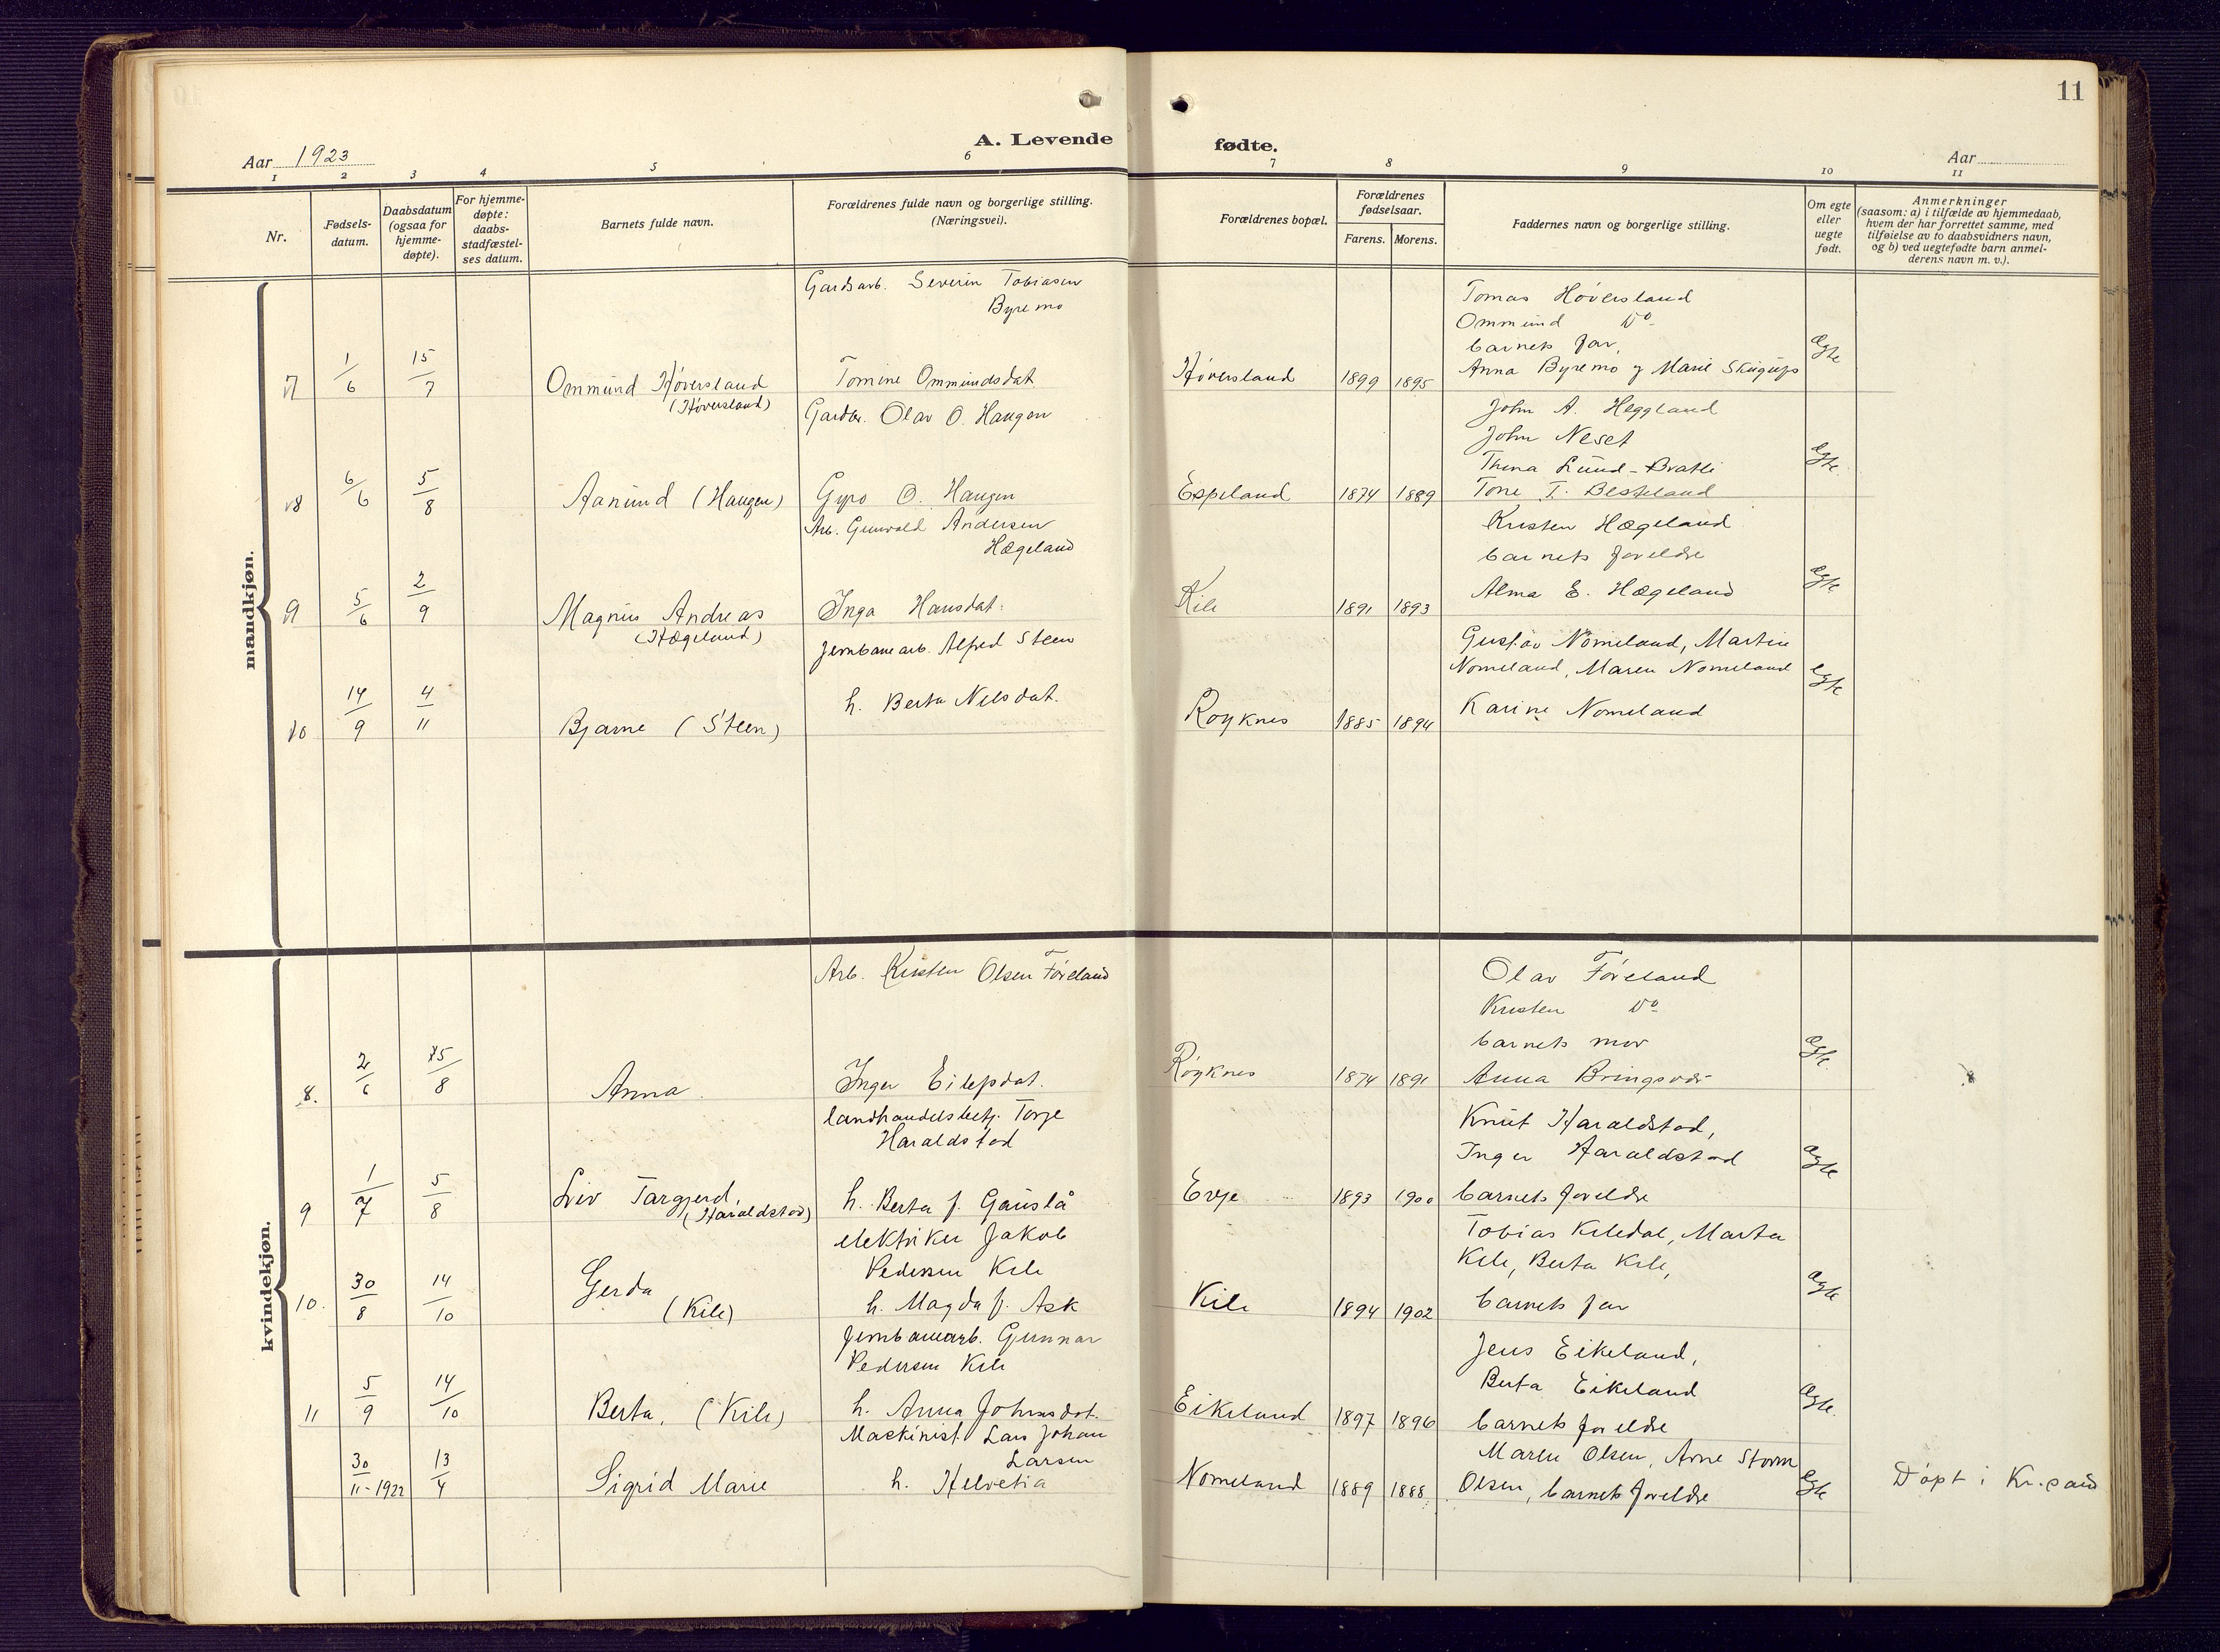 11
A. Levende fødte.
Aar 1923
Aar
1 2 3 4 5 6 7 8 9 10 11
Nr.
Fødsels-
datum.
Daabsdatum
(ogsaa for
hjemme-
døpte).
For hjemme-
døpte:
daabs-
stadfæstel-
ses datum.
Barnets fulde navn.
Forældrenes fulde navn og borgerlige stilling.
(Næringsvei).
Forældrenes bopæl.
Forældrenes
fødselsaar.
Farens. Morens.
Faddernes navn og borgerlige stilling.
Om egte
eller
uegte
født.
Anmerkninger
(saasom: a) i tilfælde av hjemmedaab,
hvem der har forrettet samme, med
tilføielse av to daabsvidners navn,
og b) ved uegtefødte barn anmel-
derens navn m. v.).
mandkjøn.
7
1/6
15/7
Ommund Høversland
(Høversland)
Gardsarb. Severin Tobiasen
Byremo
Tomine Ommundsdat.
Høversland
1899 1895
Tomas Høversland
Ommund Do
barnets far,
Anna Byremo og Marie
Egte
8
6/6
5/8
Aanund (Haugen)
Gardbr. Olav O. Haugen
Gyro O. Haugen
Espeland
1874 1889
John A. Heggland
John Neset
Thina Lund-Bratli
Tone T. Besteland
Egte
9
5/6
2/9
Magnus Andreas
(Hægeland)
Arb. Gunvald Andersen
Hægeland
Inga Hansdat.
Kile
1891 1893
Kristen Hægeland
barnets foreldre
Alma E. Hægeland
Egte
10
14/9
4/11
Bjarne (Steen)
Jernbanearb. Alfred Steen
h. Berta Nilsdat.
Røyknes
1885 1894
Gustav Nomeland, Martin
Nomeland, Maren Nomeland
Karine Nomeland
Egte
kvindekjøn.
8.
2/6
15/8
Anna.
Arb. Kristen Olsen Føreland
Inger Eilefsdat.
Røyknes
1874 1891
Olav Føreland
Kristen Do
barnets mor
Anna Bringsvær
Egte
9
1/7
5/8
Liv Targjerd,
(Haraldstad)
landhandelsbetj. Torje
Haraldstad
h. Berta f. Gauslå
Evje
1893 1900
Knut Haraldstad,
Inger Haraldstad
barnets foreldre
Egte
10.
30/8
14/10
Gerda
(Kile)
elektriker Jakob
Pedersen Kile
h. Magda f. Ask
Kile
1894 1902
Tobias Kiledal, Marta
Kile, Berta Kile,
barnets far
Egte
11
5/9
14/10
Berta, (Kile)
Jernbanearb. Gunnar
Pedersen Kile
h. Anna Johnsdat.
Eikeland
1897 1896
Jens Eikeland,
Berta Eikeland
barnets foreldre
Egte.
30/11-1922
13/4
Sigrid Marie
Maskinist Lars Johan
Larsen
h. Helvetia
Nomeland
1889 1888
Maren Olsen, Arne Storm
Olsen, barnets foreldre
Egte
Døpt i Kr.sand